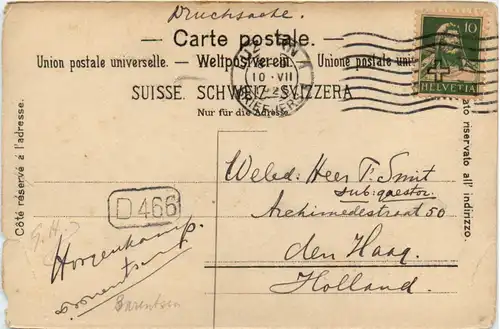 Drucksache.
Carte postale.
Union postale universelle. — Weltpostverein. — Unione postale uni
SUISSE. SCHWEIZ. SVIZZERA
Nur für die Adresse
10
HELVETIA
10·VII
BRIEFVERS
Côté réservé à l'adresse.
ato riservato all' indirizzo.
D 466
Weled: Heer F. Smit
sub:quaestor.
Archimedestraat 50
den Haag.
Holland.
G.H.
Barentsen